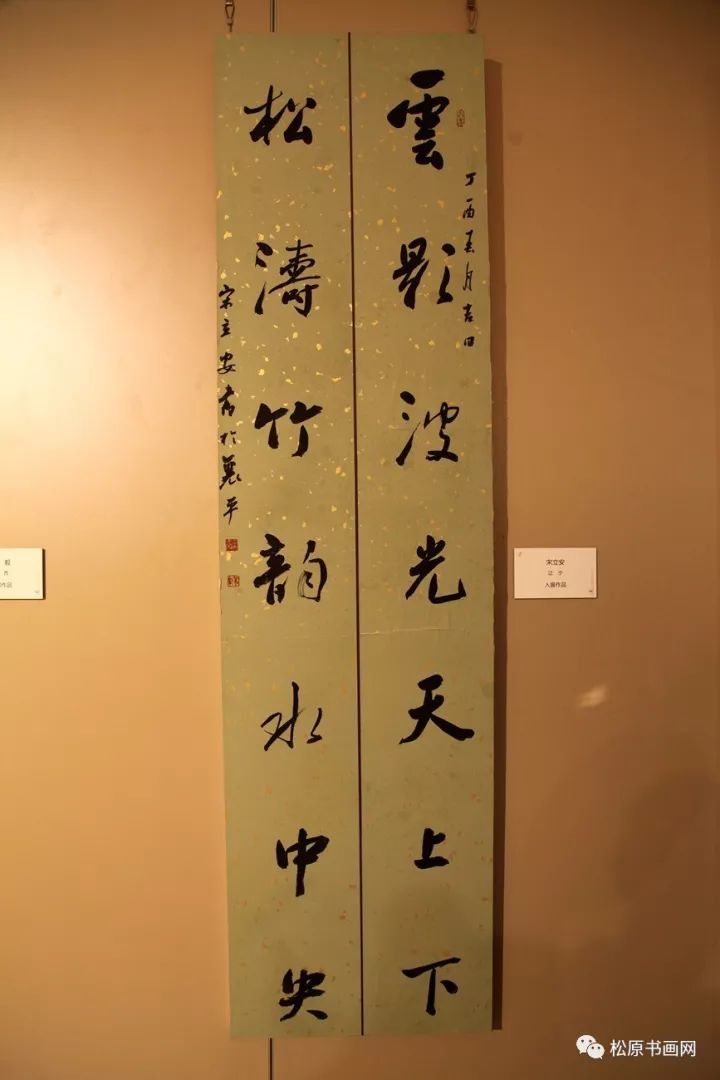 雲影波光天上下
丁酉春月吉日
松濤竹韵水中央
宋立安書於襄平
宋立安
入展作品
作品
松原书画网